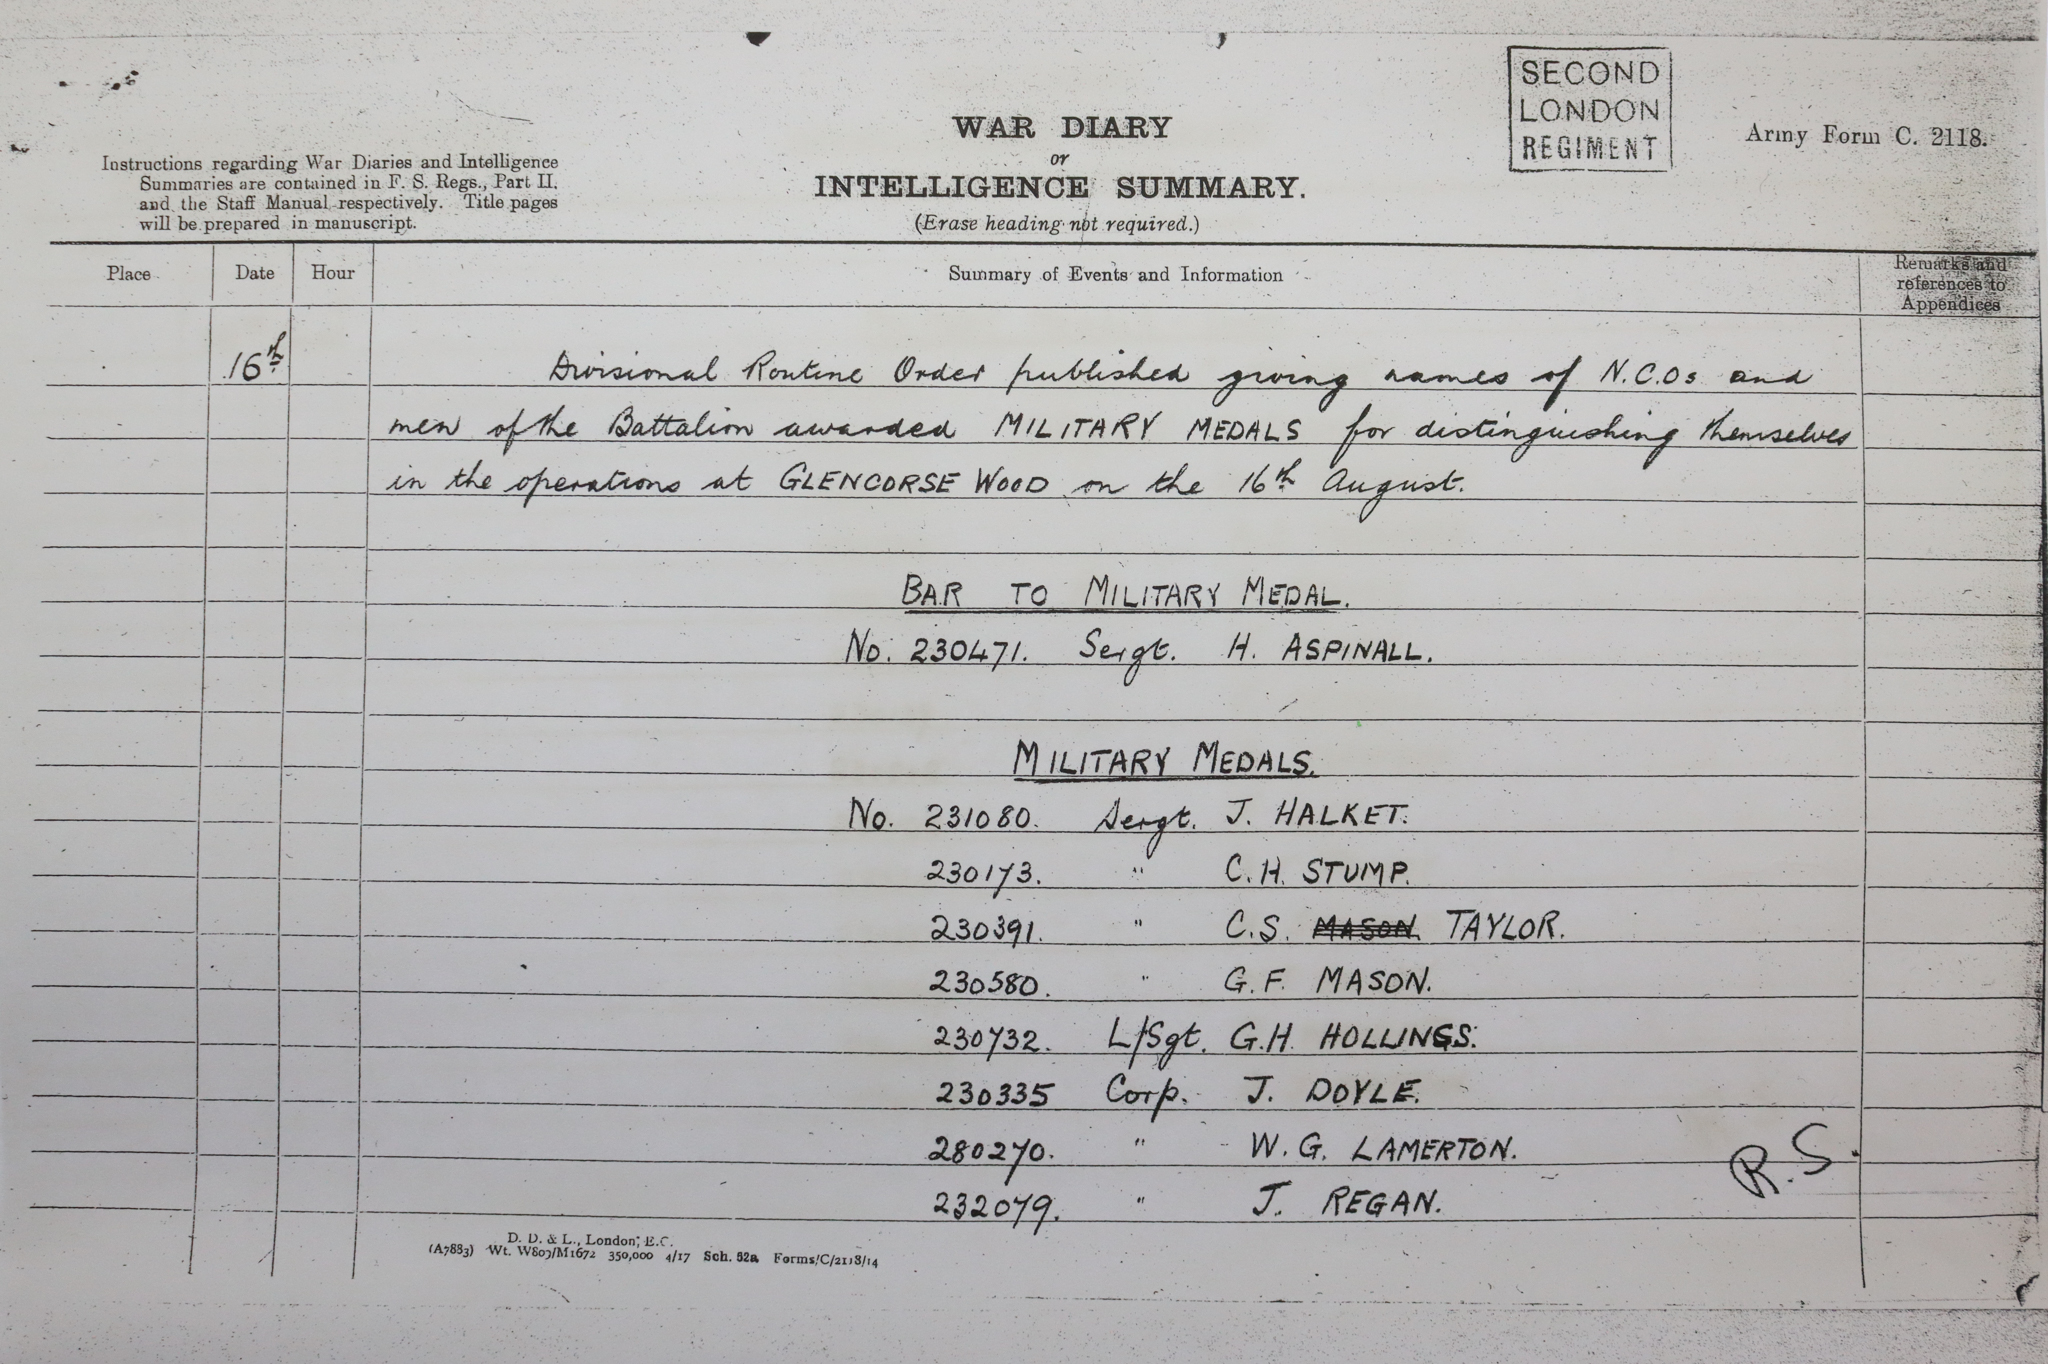 SECOND
LONDON
REGIMENT
Army Form C. 2118.
WAR DIARY
or
INTELLIGENCE SUMMARY.
(Erase heading not required.)
Instructions regarding War Diaries and Intelligence
Summaries are contained in F. S. Regs., Part II.
and the Staff Manual respectively. Title pages
will be prepared in manuscript.
Place Date Hour Summary of Events and Information Remarks and
references to
Appendices
16th Divisional Routine Order published giving names of N.C.Os and
men of the Battalion awarded MILITARY MEDALS for distinguishing themselves
in the operations at GLENCORSE WOOD on the 16th August.
BAR TO MILITARY MEDAL.
No. 230471. Sergt. H. ASPINALL.
MILITARY MEDALS.
No. 231080. Sergt. J. HALKET.
230173. " C.H. STUMP.
230391. " C.S. MASON. TAYLOR.
230580. " G.F. MASON.
230732. L/Sgt. G.H. HOLLINGS.
230335 Corp. J. DOYLE.
280270. " W.G. LAMERTON.
232079. " J. REGAN.
R.S.
D. D. & L., London, E.C.
(A7883) Wt. W809/M1672 350,000 4/17 Sch. 52a Forms/C/2118/14